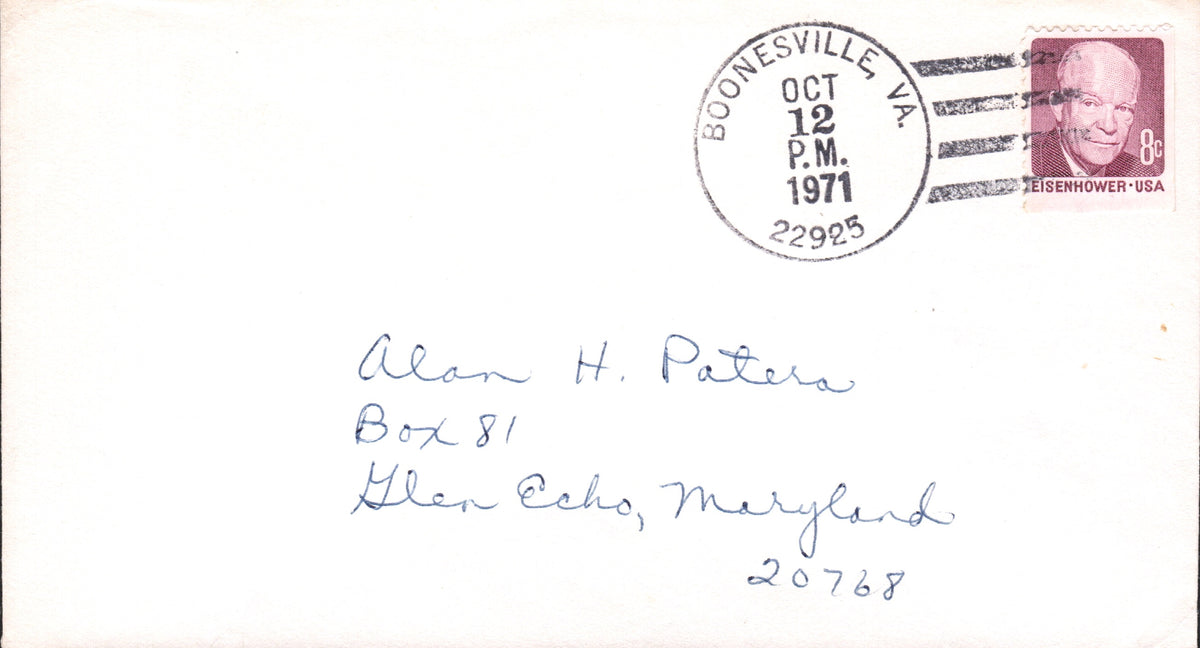 BOONESVILLE, VA.
OCT
12
P.M.
1971
22925
8c
EISENHOWER·USA
Alan H. Patera
Box 81
Glen Echo, Maryland
20768